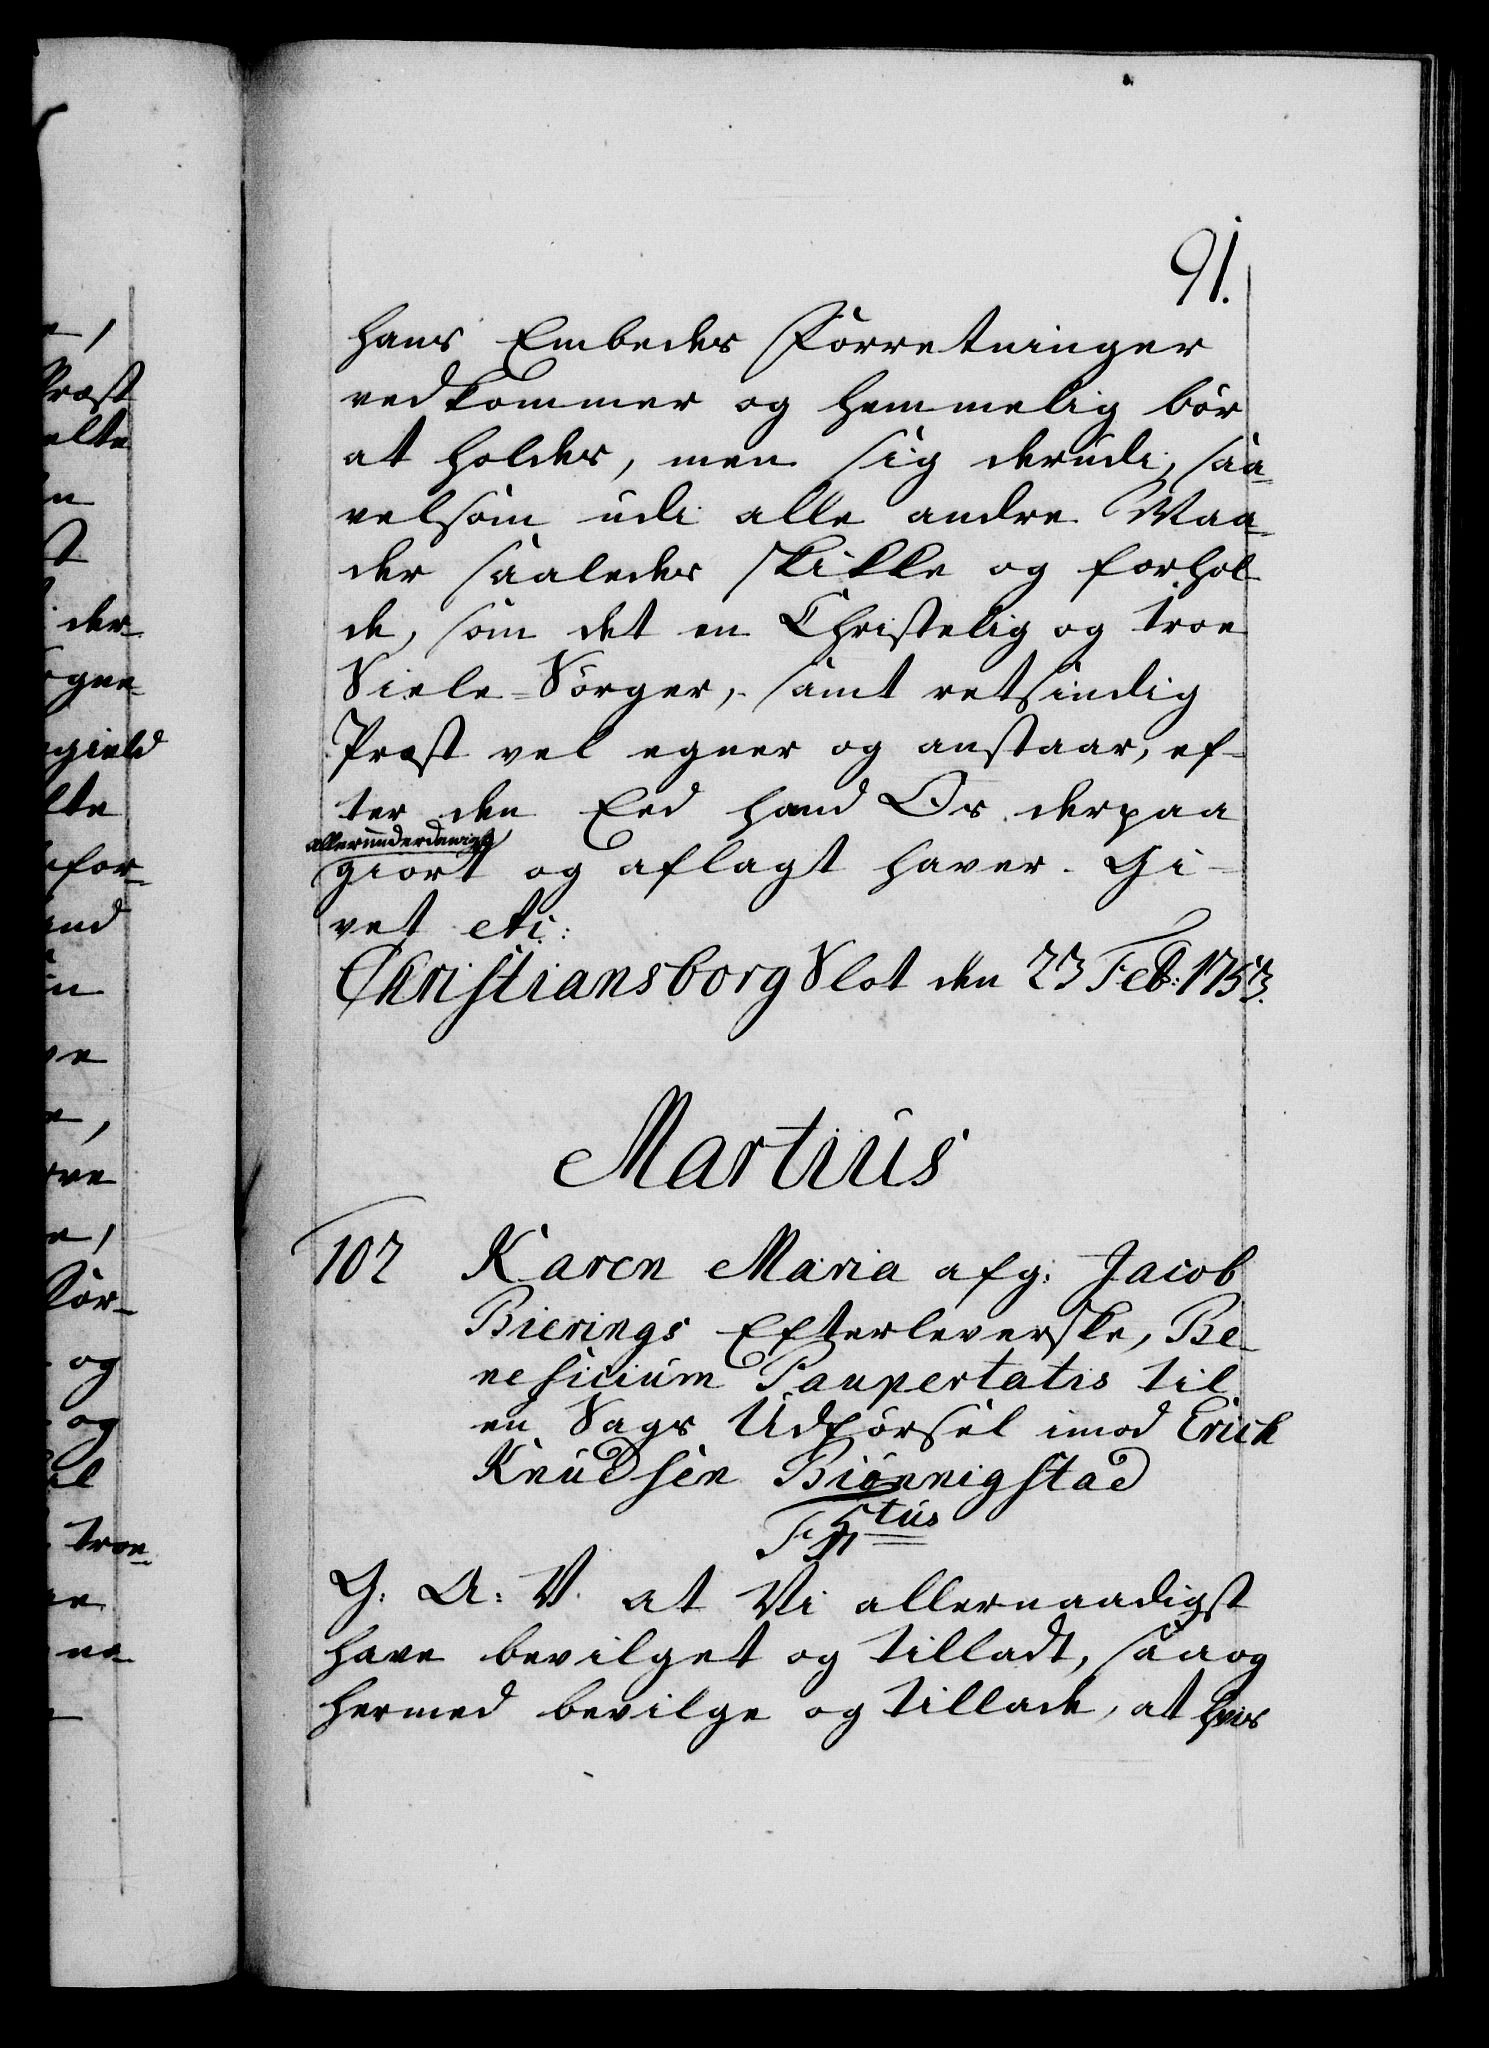 91.
hans Embedes Forretninger
vedkommer og hemmelig bör
at holdes, men sig derudi, saa-
velsom udi alle andre Maa-
der saaledes skikke og forhol-
de, som det en Christelig og troe
Siele-Sörger, samt retsindig
Præst vel egner og anstaar, ef-
ter den Eed hand Os derpaa
allerunderdanigst
giort og aflagt haver. Gi-
vet etc:
Christiansborg Slot den 23 Feb: 1753.
Martius
102 Karen Maria afg: Jacob
Bierings Efterleverske, Be-
neficium Paupertatis til
en Sags Udförsel imod Erich
Knudsen Biönnigstad
G: A: V. at Vi allernaadigst
have bevilget og tilladt, saa og
hermed bevilge og tillade, at hvis